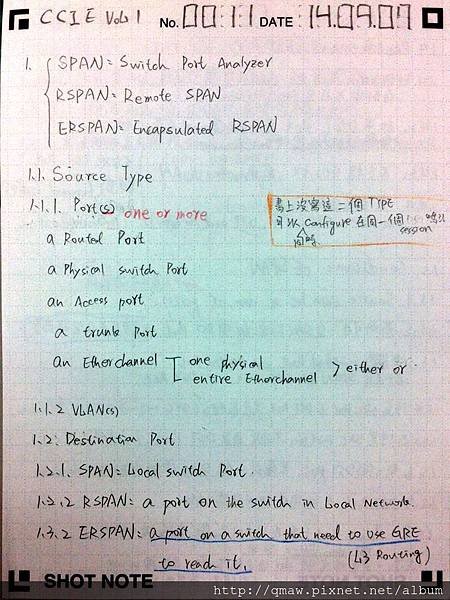 CCIE Vol 1 No. 00:11 DATE 14.09.07
1. SPAN= Switch Port Analyzer
RSPAN= Remote SPAN
ERSPAN= Encapsulated RSPAN
1.1. Source Type
1.1.1. Port(s) one or more
書上沒寫這二個 TYPE
可以 Configure 在同一個
同時
session
a Routed Port
a Physical switch Port
an Access port
a trunk Port
an Etherchannel one physical
entire Etherchannel either or
1.1.2 VLAN(s)
1.2. Destination Port
1.2.1. SPAN= Local switch Port
1.2.2 RSPAN= a port on the switch in Local Network.
1.3.2 ERSPAN= a port on a switch that need to use GRE
to reach it. (L3 Routing)
SHOT NOTE
http://qmaw.pixnet.net/album